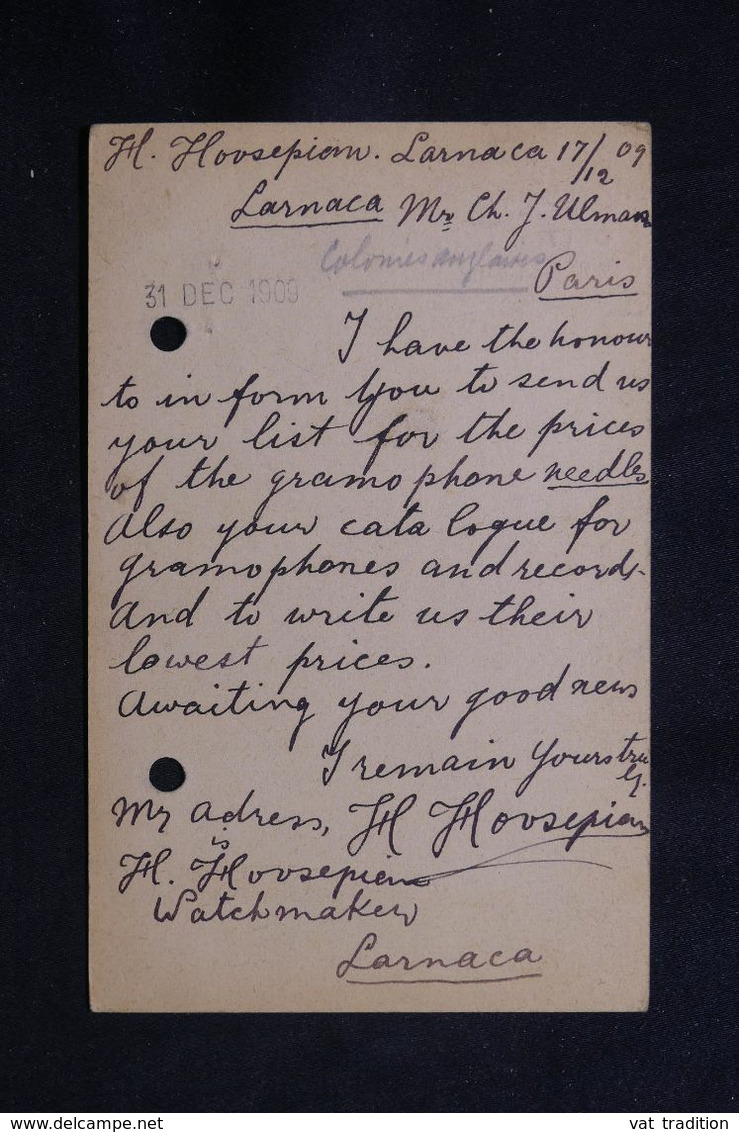 H. Hovsepian. Larnaca 17/12 09
Larnaca Mr Ch. J. Ulman
Colonies anglaises
Paris
31 DEC 1909
I have the honour
to in form You to send us
your list for the prices
of the gramophone needles
Also your cata logue for
gramophones and records.
And to write us their
lowest prices.
Awaiting your good news
I remain Yours tru
ly.
My adress, H Hovsepian
is
H. Hovsepian
Watchmaker
Larnaca
www.delcampe.net
vat tradition